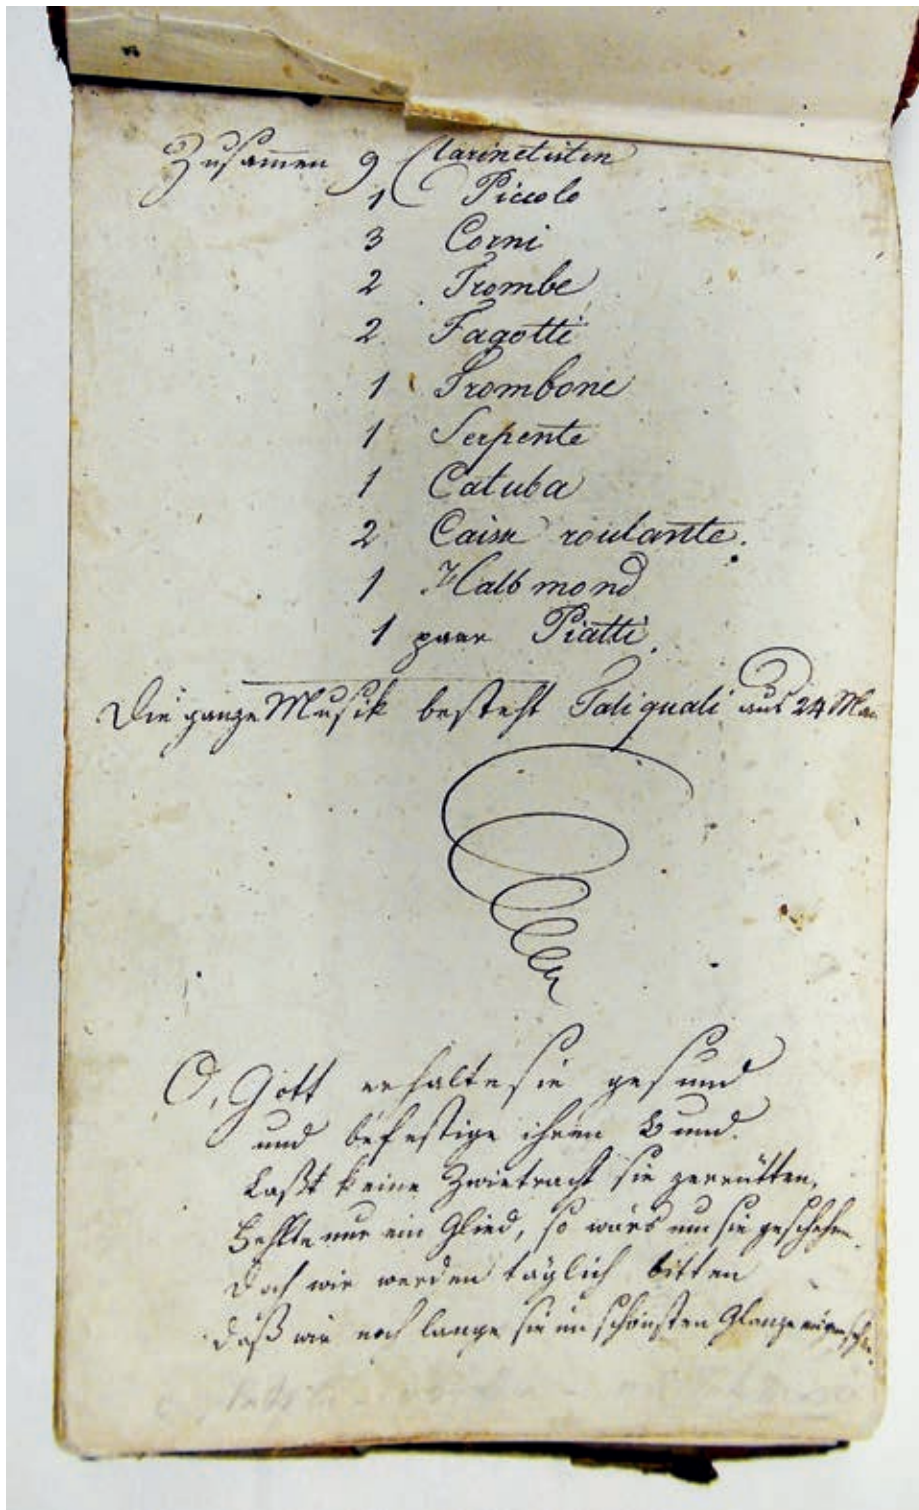 Zusammen 9 Clarinetisten
1 Piccolo
3 Corni
2 Trombe
2 Fagotti
1 Trombone
1 Serpente
1 Catuba
2 Caisse roulante.
1 Halbmond
1 paar Piatti.
Die ganze Musik besteht Taliquali aus 24 Man
O, Gott erhalte sie gesund
und befestige ihren Bund.
Laßt keine Zwietracht sie zerrütten,
Fehlte nur ein Glied, so wärs um sie geschehen.
Doch wir werden täglich bitten
daß wir noch lange sie im schönsten Glanze